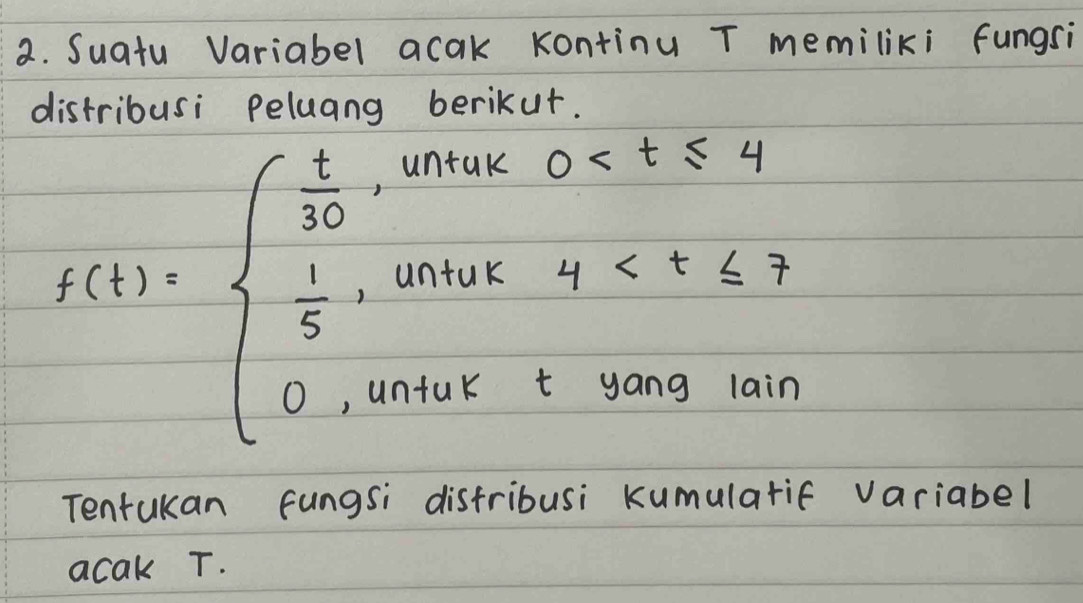 2. Suatu Variabel acak Kontinu T memiliki fungsi
distribusi Peluang berikut.
f(t) = { t/30 , untuk 0 < t ≤ 4
1/5 , untuk 4 < t ≤ 7
0 , untuk t yang lain
Tentukan fungsi distribusi Kumulatif Variabel
acak T.